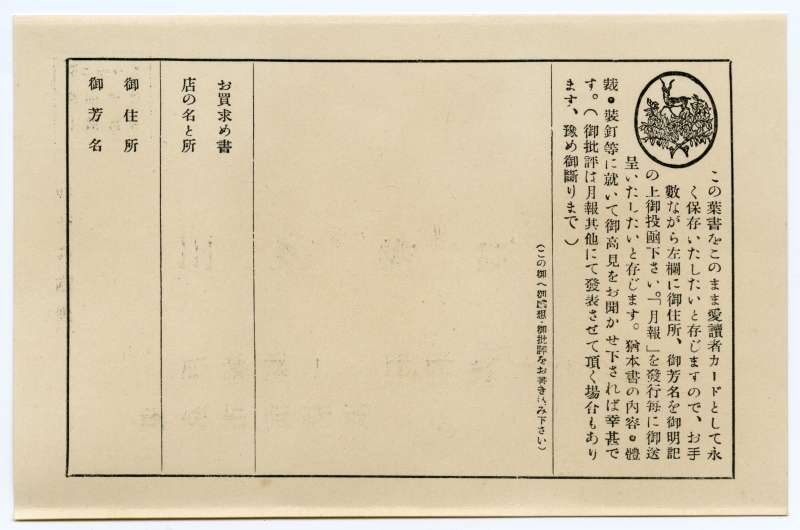 この葉書をこのまま愛讀者カードとして永
く保存いたしたいと存じますので、お手
數ながら左欄に御住所、御芳名を御明記
の上御投函下さい。「月報」を發行每に御送
呈いたしたいと存じます。猶本書の内容・體
裁・裝釘等に就いて御高見をお聞かせ下されば幸甚で
す。(御批評は月報其他にて發表させて頂く場合もあり
ます、豫め御斷りまで)
(この御へ御感想・御批評をお書き込み下さい)
お買求め書
店の名と所
御住所
御芳名